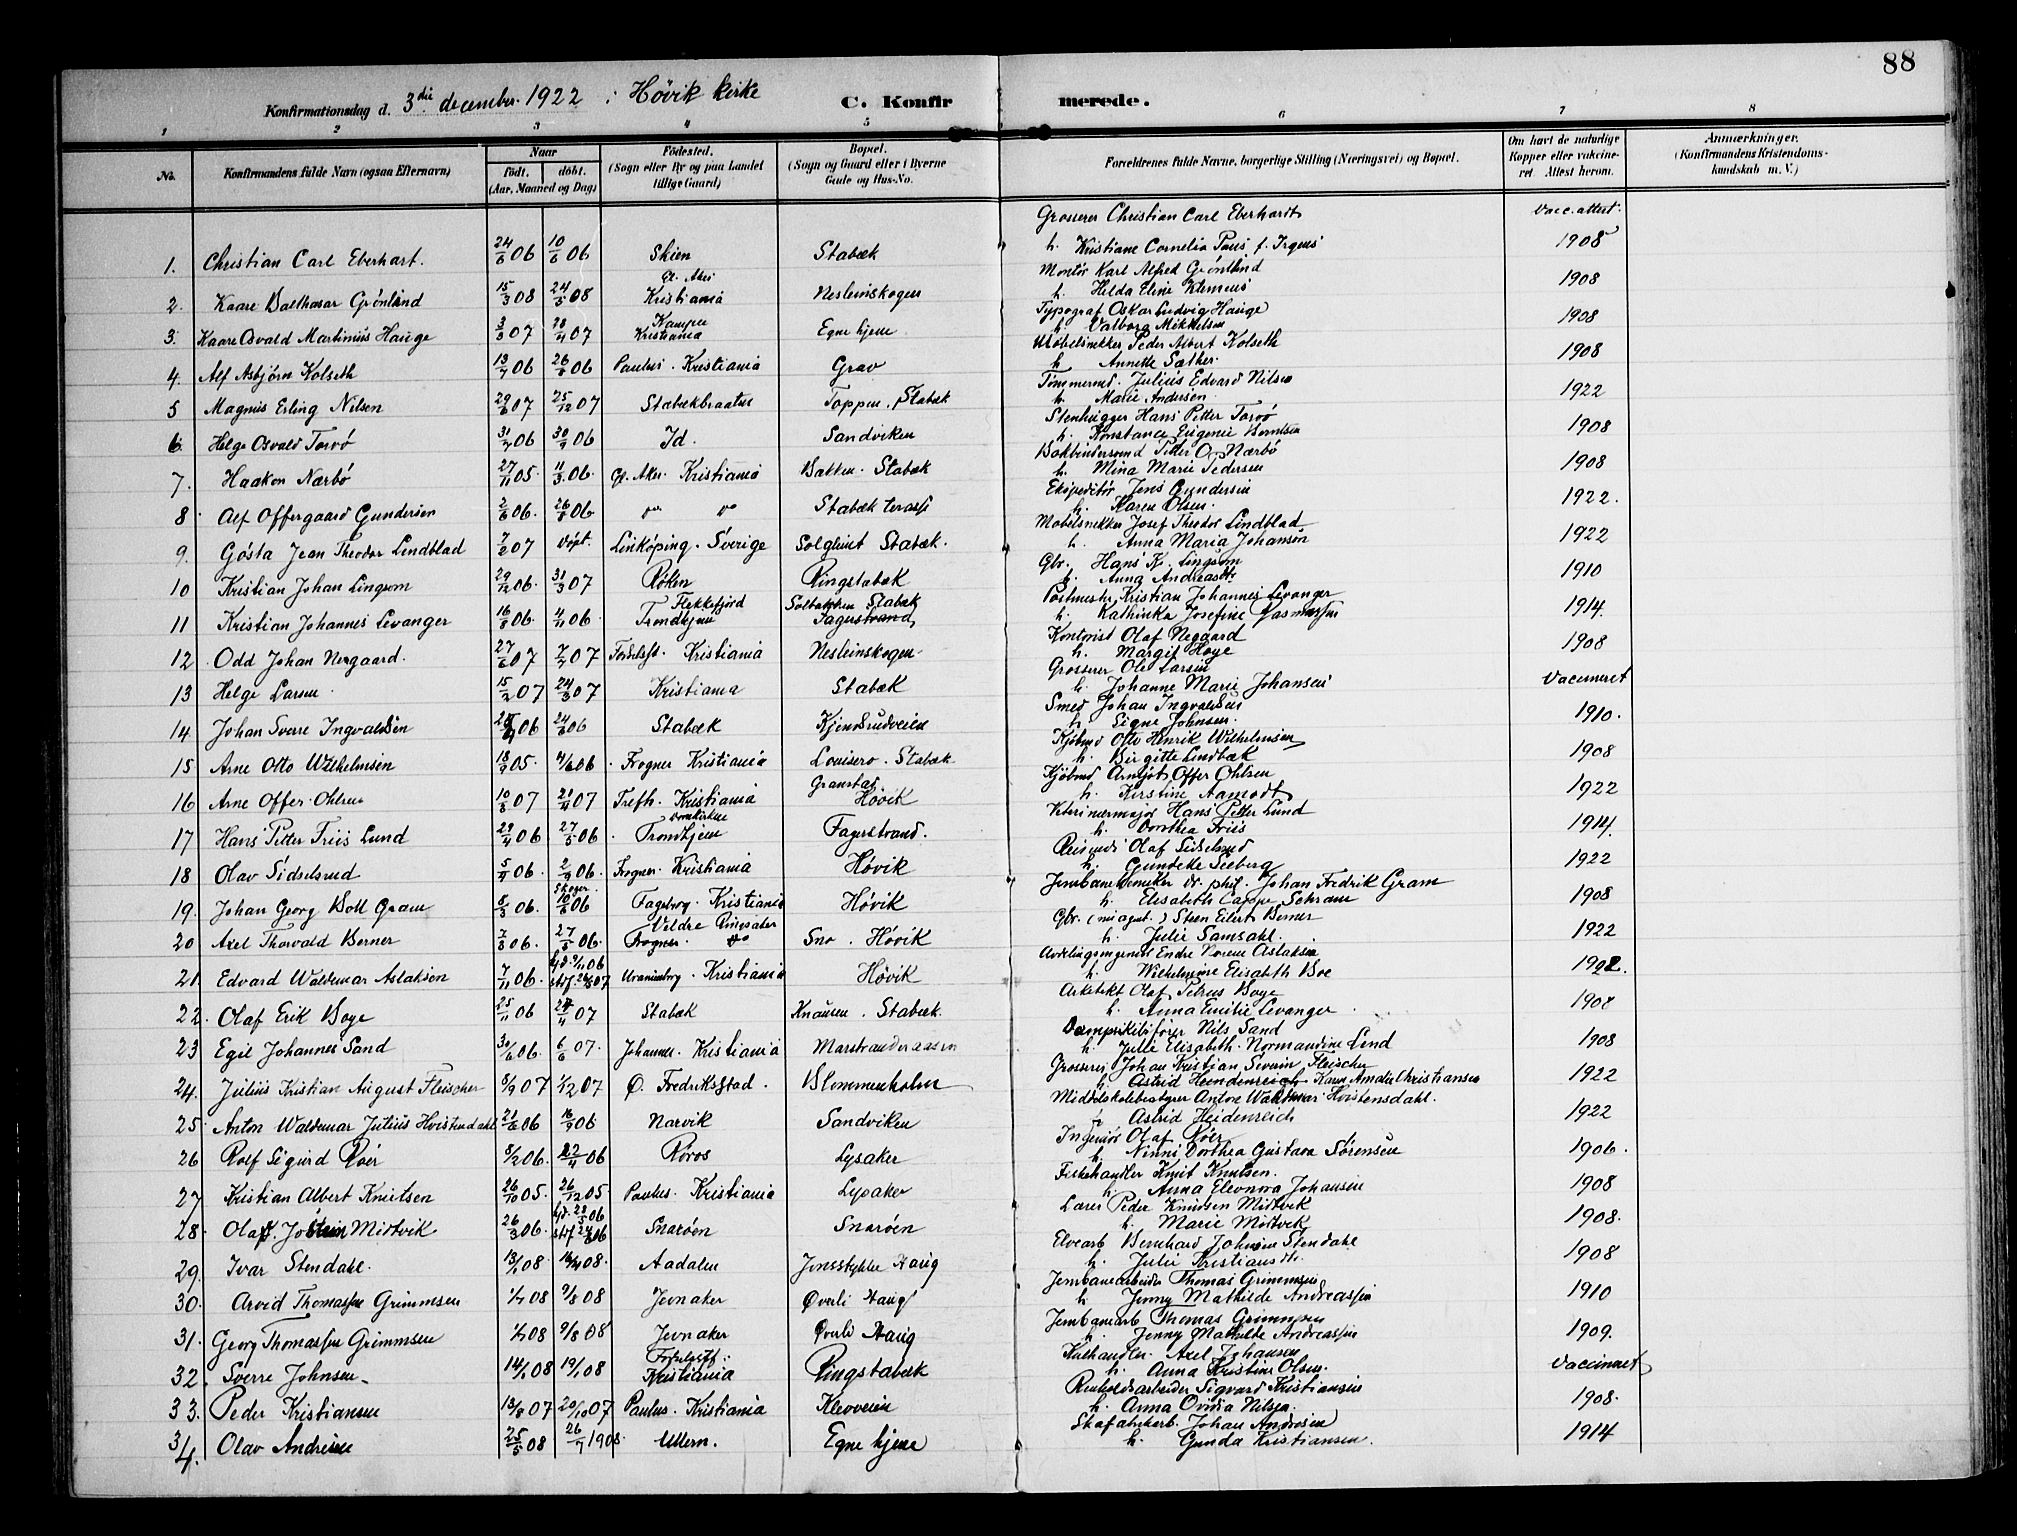 88
Konfirmationsdag d. 3die december 1922 i Høvik kirke
C. Konfirmerede.
1 2 3 4 5 6 7 8
No. Konfirmandens fulde Navn (ogsaa Efternavn) Naar födt. döbt. (Aar, Maaned og Dag) Födested. (Sogn eller By og paa Landet tillige Gaard) Bopæl. (Sogn og Gaard eller i Byerne Gade og Hus-No. Forældrenes fulde Navne, borgerlige Stilling (Næringsvei) og Bopæl. Om havt de naturlige Kopper eller vakcineret. Attest herom. Anmærkninger. (Konfirmandens Kristendomskundskab m. V.)
Grosserer Christian Carl Eberhardt Vacc. attest.
1. Christian Carl Eberhart. 24/6 06 10/6 06 Skien Stabæk h. Kristiane Cornelia Paus f. Irgens 1908
Gl. Aker Montör Karl Alfred Grönlind
2. Kaare Balthasar Grönlind 15/3 08 24/5 08 Kristiania Nesleinskogen h. Hilda Eline Klemens 1908
Kampen Typograf Oskar Ludvig Hauge
3. Kaare Osvald Martinius Hauge 3/3 07 28/4 07 Kristiania Egne hjem h. Valborg Mikkelsen 1908
Möbelsnekker Peder Albert Kolseth
4. Alf Asbjörn Kolseth 13/7 06 26/8 06 Paulus. Kristiania Grav h. Annette Sæther 1908
Tömmermd. Julius Edvard Nilsen
5 Magnus Erling Nilsen 29/6 07 25/12 07 Stabækbraaten Toppen, Stabæk h. Marie Andersen 1922
Stenhugger Hans Petter Torvö
6. Helge Osvald Torvö 31/7 06 30/9 06 Id. Sandviken h. Konstance Eugenie Berntsen 1908
Bokbindersvend Petter O. Nærbö
7. Haakon Nærbö 27/11 05 11/3 06 Gl. Aker. Kristiania Bakken. Stabæk h. Mina Marie Pedersen 1908
Ekspeditör Jens Gundersen
8 Alf Offergaard Gundersen 2/6 06 26/8 06 Stabæk terasse h. Karen Olsen 1922.
Möbelsnekker Josef Theodor Lindblad
9. Gösta Jean Theodor Lindblad 7/2 07 döpt. Linköping. Sverige Solglimt Stabæk. h. Anna Maria Johanson 1922
Gbr. Hans K. Lingsom
10 Kristian Johan Lingsom 29/12 06 31/3 07 Röken Ringstabæk h. Anna Andreasdtr 1910
Flekkefjord Solbakken Stabæk Postmester Kristian Johannes Levanger
11 Kristian Johannes Levanger 16/8 06 4/11 06 Trondhjem Fagerstrand h. Kathinka Josefine Rasmussen 1914.
Kontorist Olaf Neegaard
12 Odd Johan Nergaard. 27/6 07 7/7 07 Födselsst. Kristiania Nesleinskogen h. Margit Hoye 1908
Grosserer Ole Larsen
13 Helge Larsen 15/2 07 24/3 07 Kristiania Stabæk h. Johanne Marie Johansen Vaccineret
Smed Johan Ingvaldsen
14 Johan Sverre Ingvaldsen 06 24/6 06 Stabæk Kjensrudveien h. Signe Johnsen. 1910.
Kjöbmd Otto Henrik Wilhelmsen
15 Arne Otto Wilhelmsen 18/9 05 4/6 06 Frogner Kristiania Louisero. Stabæk h. Birgitte Lindbæk 1908
Granstad Kjöbmd Arntjot Offer Ohlsen
16 Arne Offer Ohlsen 10/3 07 21/4 07 Trefh. Kristiania Høvik h. Kirstine Aamodt 1922
Domkirken Veterinærmajor Hans Petter Lund
17 Hans Petter Friis Lund 29/4 06 27/5 06 Trondhjem Fagerstrand. h. Dorthea Friis 1914.
Reisende Olaf Sidselrud
18 Olav Sidselrud 5/7 06 2/9 06 Frogner. Kristiania Høvik h. Gundelle Seeberg 1922
Skoger. Jernbanekemiker dr. phil. Johan Fredrik Gram
19. Johan Georg Boll Gram 8/3 06 10/6 06 Fagerborg. Kristiania Høvik h. Elisabeth Cappe Schram 1908
Veldre Ringsaker Gbr. (nu agent.) Steen Eilert Berner
20 Axel Thorvald Berner 7/3 06. 27/5 06. Frogner. do Sno. Høvik h. Julie Samsahl. 1922
hjd. 9/11 06 Avdelingsingeniör Endre Aslaksen
21. Edvard Waldemar Aslaksen 7/11 06. stf. 07 Uranienborg. Kristiania Høvik h. Wilhelmine Elisabeth Boe 1922.
Arkitekt Olaf Petrus Boye
22. Olaf Erik Boye 25/11 06 21/4 07 Stabæk Knausen. Stabæk. h. Anna Emilie Levanger 1908
Dampskibsförer Nils Sand
23 Egil Johannes Sand 30/6 06. 6/6 07. Johannes. Kristiania Marstranderaasen h. Julie Elisabeth Normandine Lind 1908
Grosserer Johan Kristian Severin Fleischer
24. Julius Kristian August Fleischer 8/9 07 1/12 07 Ø. Fredriksstad. Blommenholm h. Astrid Heidenreich Karen Amalie Christiansen 1922
Middelskolebestyrer Anton Waldemar Hvistensdahl.
25. Anton Waldemar Julius Hvistendahl 21/6 06 16/9 06 Narvik Sandviken h. Astrid Heidenreich 1922
Ingeniör Olaf Röer
26 Rolf Sigurd Röer 8/2 06. 22/4 06 Röros Lysaker h. Ninni Dorthea Gustava Sörensen 1906.
Fiskehandler Knut Knutsen.
27. Kristian Albert Knutsen 26/10 05. 26/12 05 Paulus. Kristiania Lysaker h. Anna Eleonora Johansen 1908
hjd. 28/5 06 Lærer Peder Knudsen Midtvik
28. Olaf Jostein Midtvik 26/3 06. stf. 06 Snaröen Snaröen h. Marie Midtvik 1908.
Elvearb Bernhard Johnsen Stendahl
29. Ivar Stendahl. 13/1 08 08 Aadalen Jonsstykket Haug h. Julie Kristiansdtr. 1908
Jernbanearbeider Thomas Grimmsen
30. Arvid Thomassen Grimmsen 1/7 08 9/8 08 Jevnaker Øverli Haug h. Jenny Mathilde Andreassen 1910
Jernbanearb Thomas Grimmsen
31. Georg Thomassen Grimmsen 1/7 08 9/8 08 Jevnaker Øverli Haug h. Jenny Mathilde Andreassen 1909.
Kulhandler Axel Johansen
32. Sverre Johnsen 14/1 08 19/1 08 Kristiania Ringstabæk h. Anna Kristine Olsen. Vaccineret
Renholdsarbeider Sigvard Kristiansen
33. Peder Kristiansen 13/8 07 20/10 07 Paulus. Kristiania Klevveien h. Anna Ovidia Nilsen. 1908.
Skofabrikarb. Johan Andresen
34. Olav Andresen 25/5 08 26/7 1908. Ullern. Egne hjem h. Gunda Kristiansen. 1914